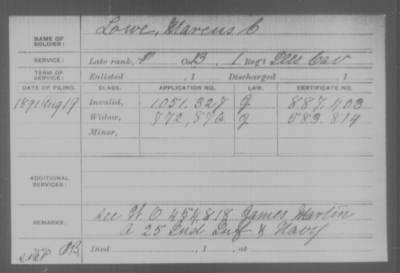 NAME OF SOLDIER: Lowe, Marcus C
SERVICE: Late rank, P Co. B, 1 Reg't Del Cav
TERM OF SERVICE: Enlisted , 1 Discharged , 1
DATE OF FILING. CLASS. APPLICATION NO. LAW. CERTIFICATE NO.
1891 Aug 19 Invalid, 1051.327 G 887.403
Widow, 772,876 G 583.814
Minor,
ADDITIONAL SERVICES:
REMARKS: see W O 454,818 James Martin
A 25 Ind Inf & Navy
Died , 1 , at